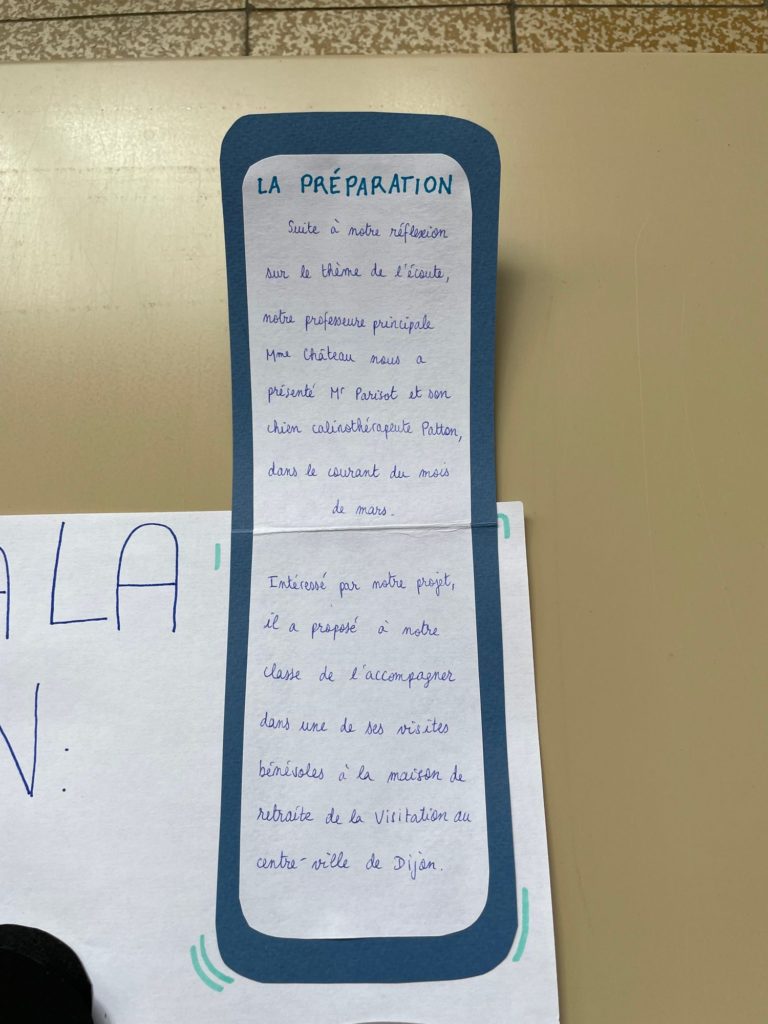 LA PRÉPARATION
Suite à notre réflexion
sur le thème de l'écoute,
notre professeure principale
Mme Château nous a
présenté Mr Parisot et son
chien calinothérapeute Patton,
dans le courant du mois
de mars.
Intéressé par notre projet,
il a proposé à notre
classe de l'accompagner
dans une de ses visites
bénévoles à la maison de
retraite de la Visitation au
centre-ville de Dijon.
A LA
N: